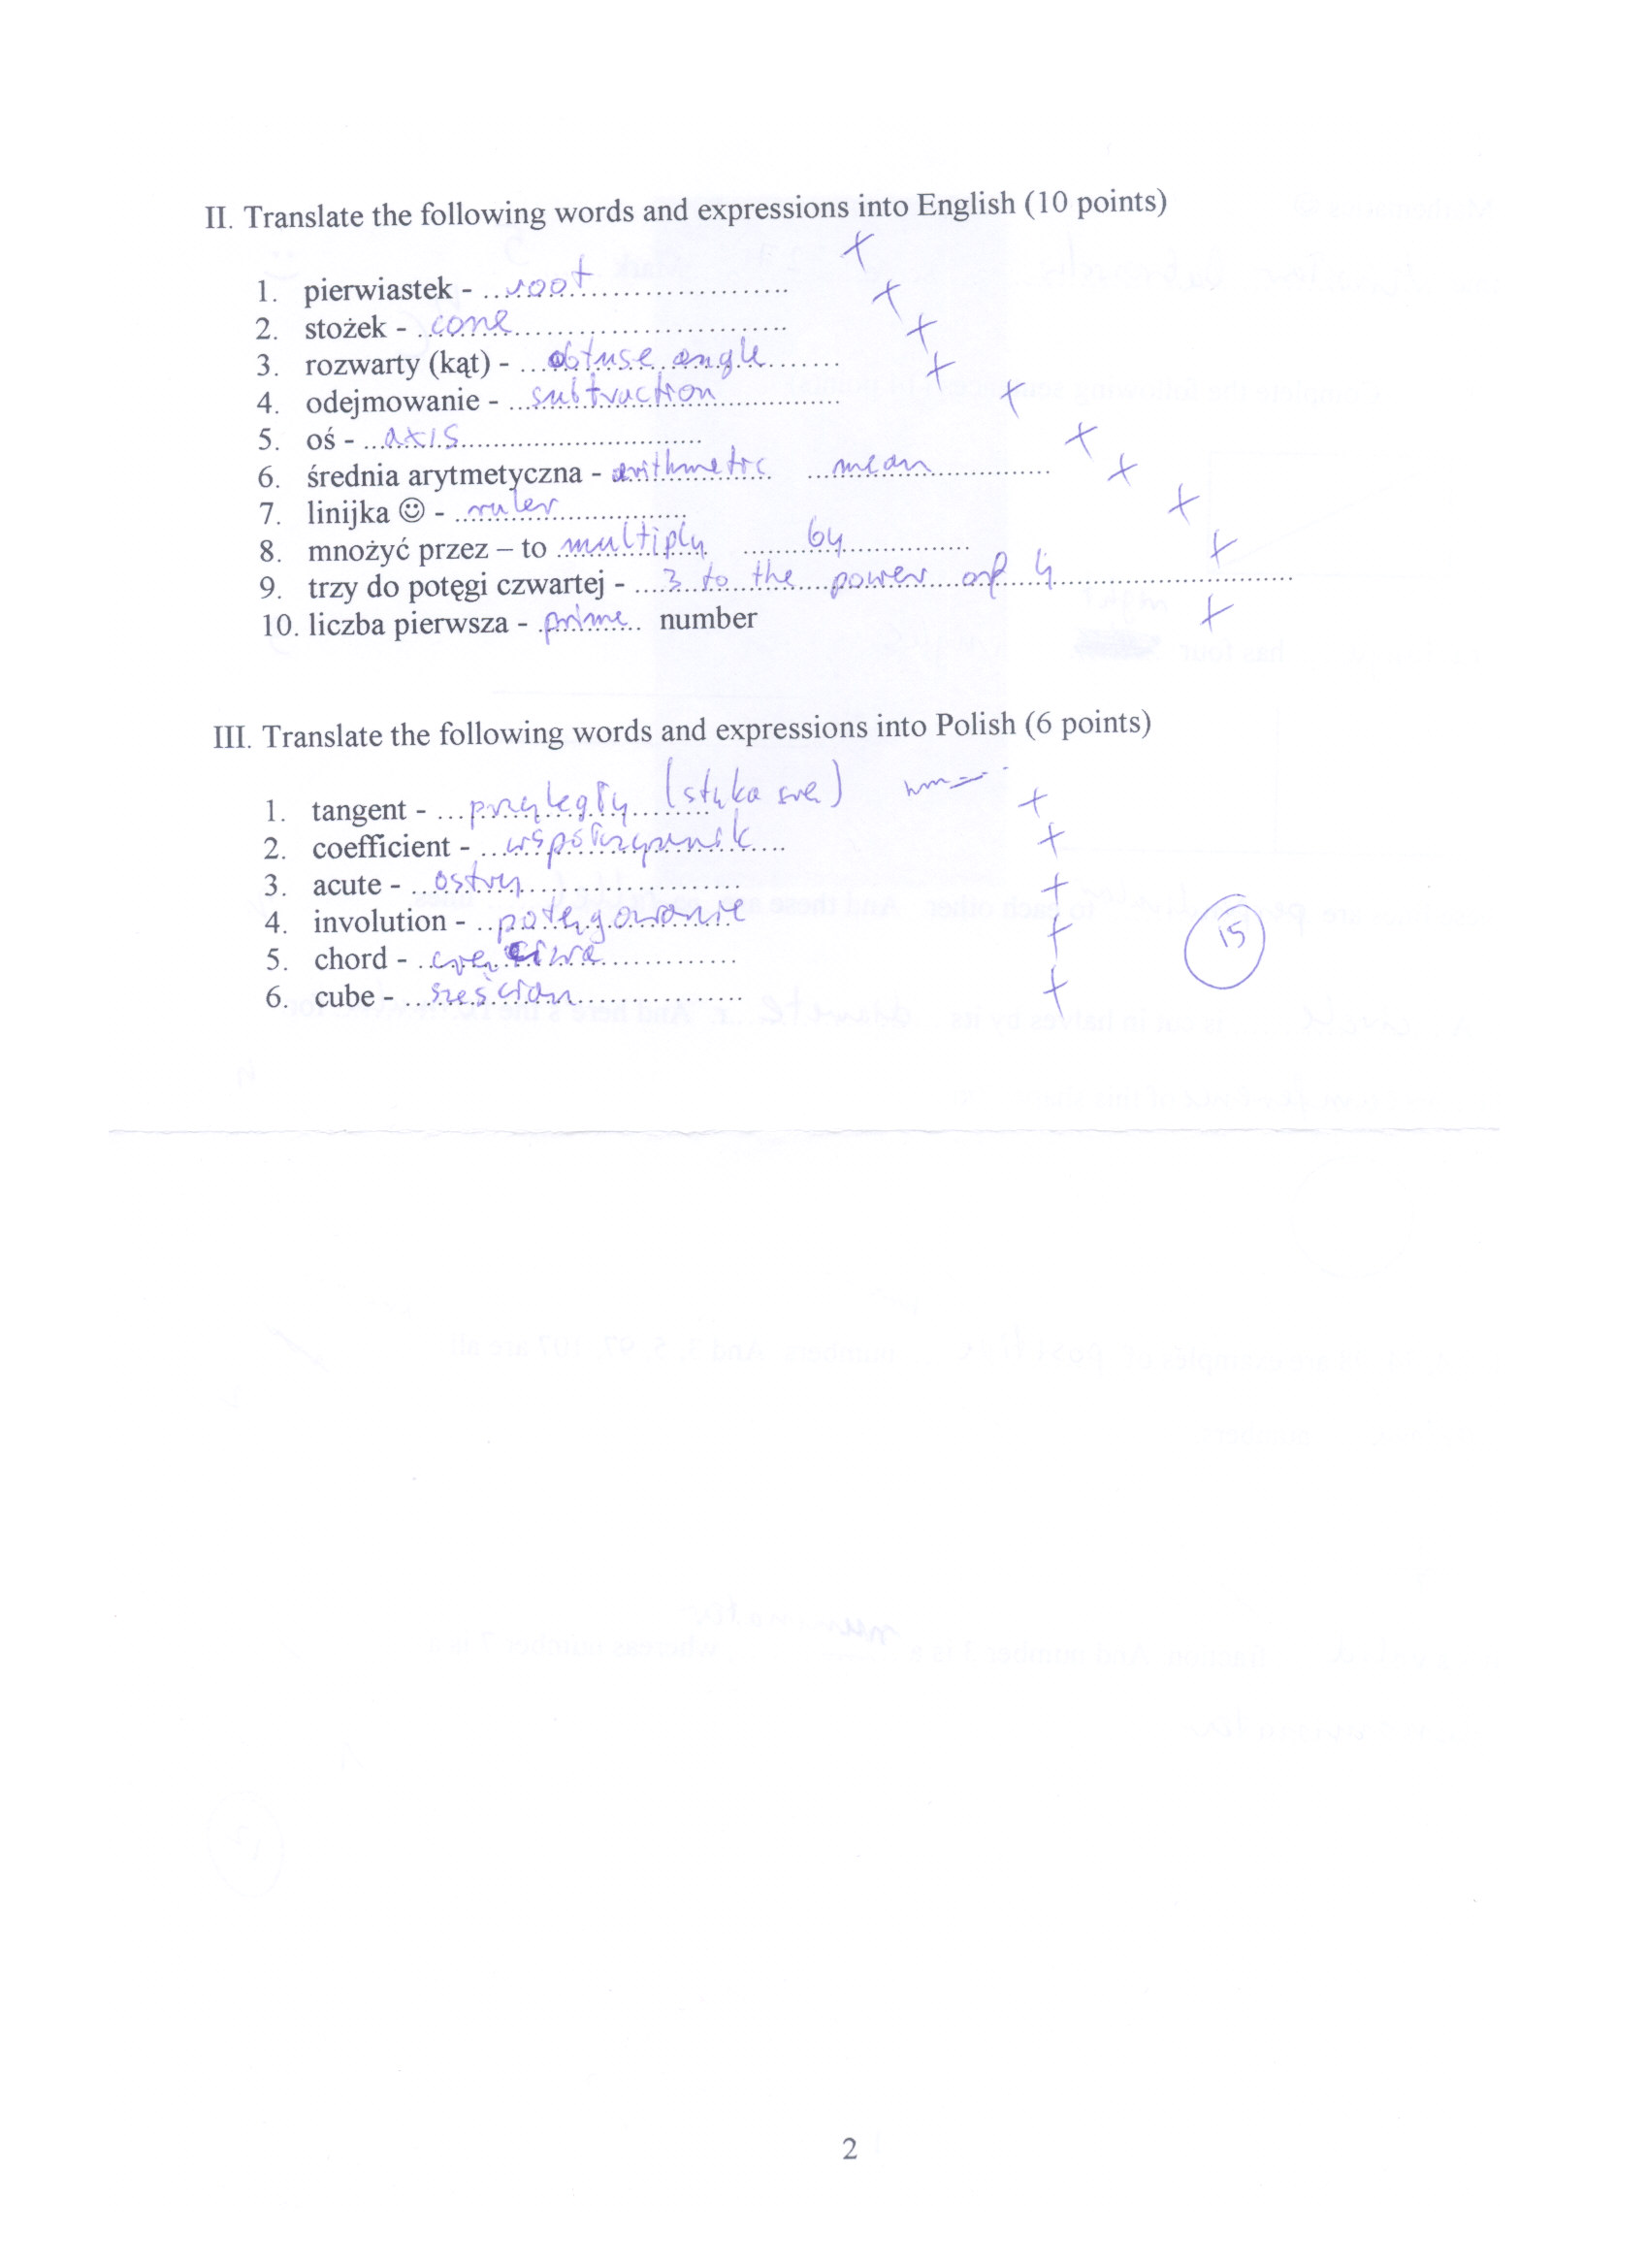 II. Translate the following words and expressions into English (10 points)
1. pierwiastek - ...root..............................
2. stożek - ...cone..............................
3. rozwarty (kąt) - ...obtuse angle........
4. odejmowanie - ...subtraction..............
5. oś - ...axis..............................
6. średnia arytmetyczna - arithmetic ...mean..............
7. linijka ☺ - ...ruler..............
8. mnożyć przez – to multiply ......by..............
9. trzy do potęgi czwartej - ...3 to the power of 4..............................
10. liczba pierwsza - prime number
III. Translate the following words and expressions into Polish (6 points)
1. tangent - ...przyległy (styka się)
2. coefficient - ...współczynnik...
3. acute - ...ostry..............................
4. involution - ...potęgowanie
5. chord - ...cięciwa..............
6. cube - ...sześcian..............
15
2